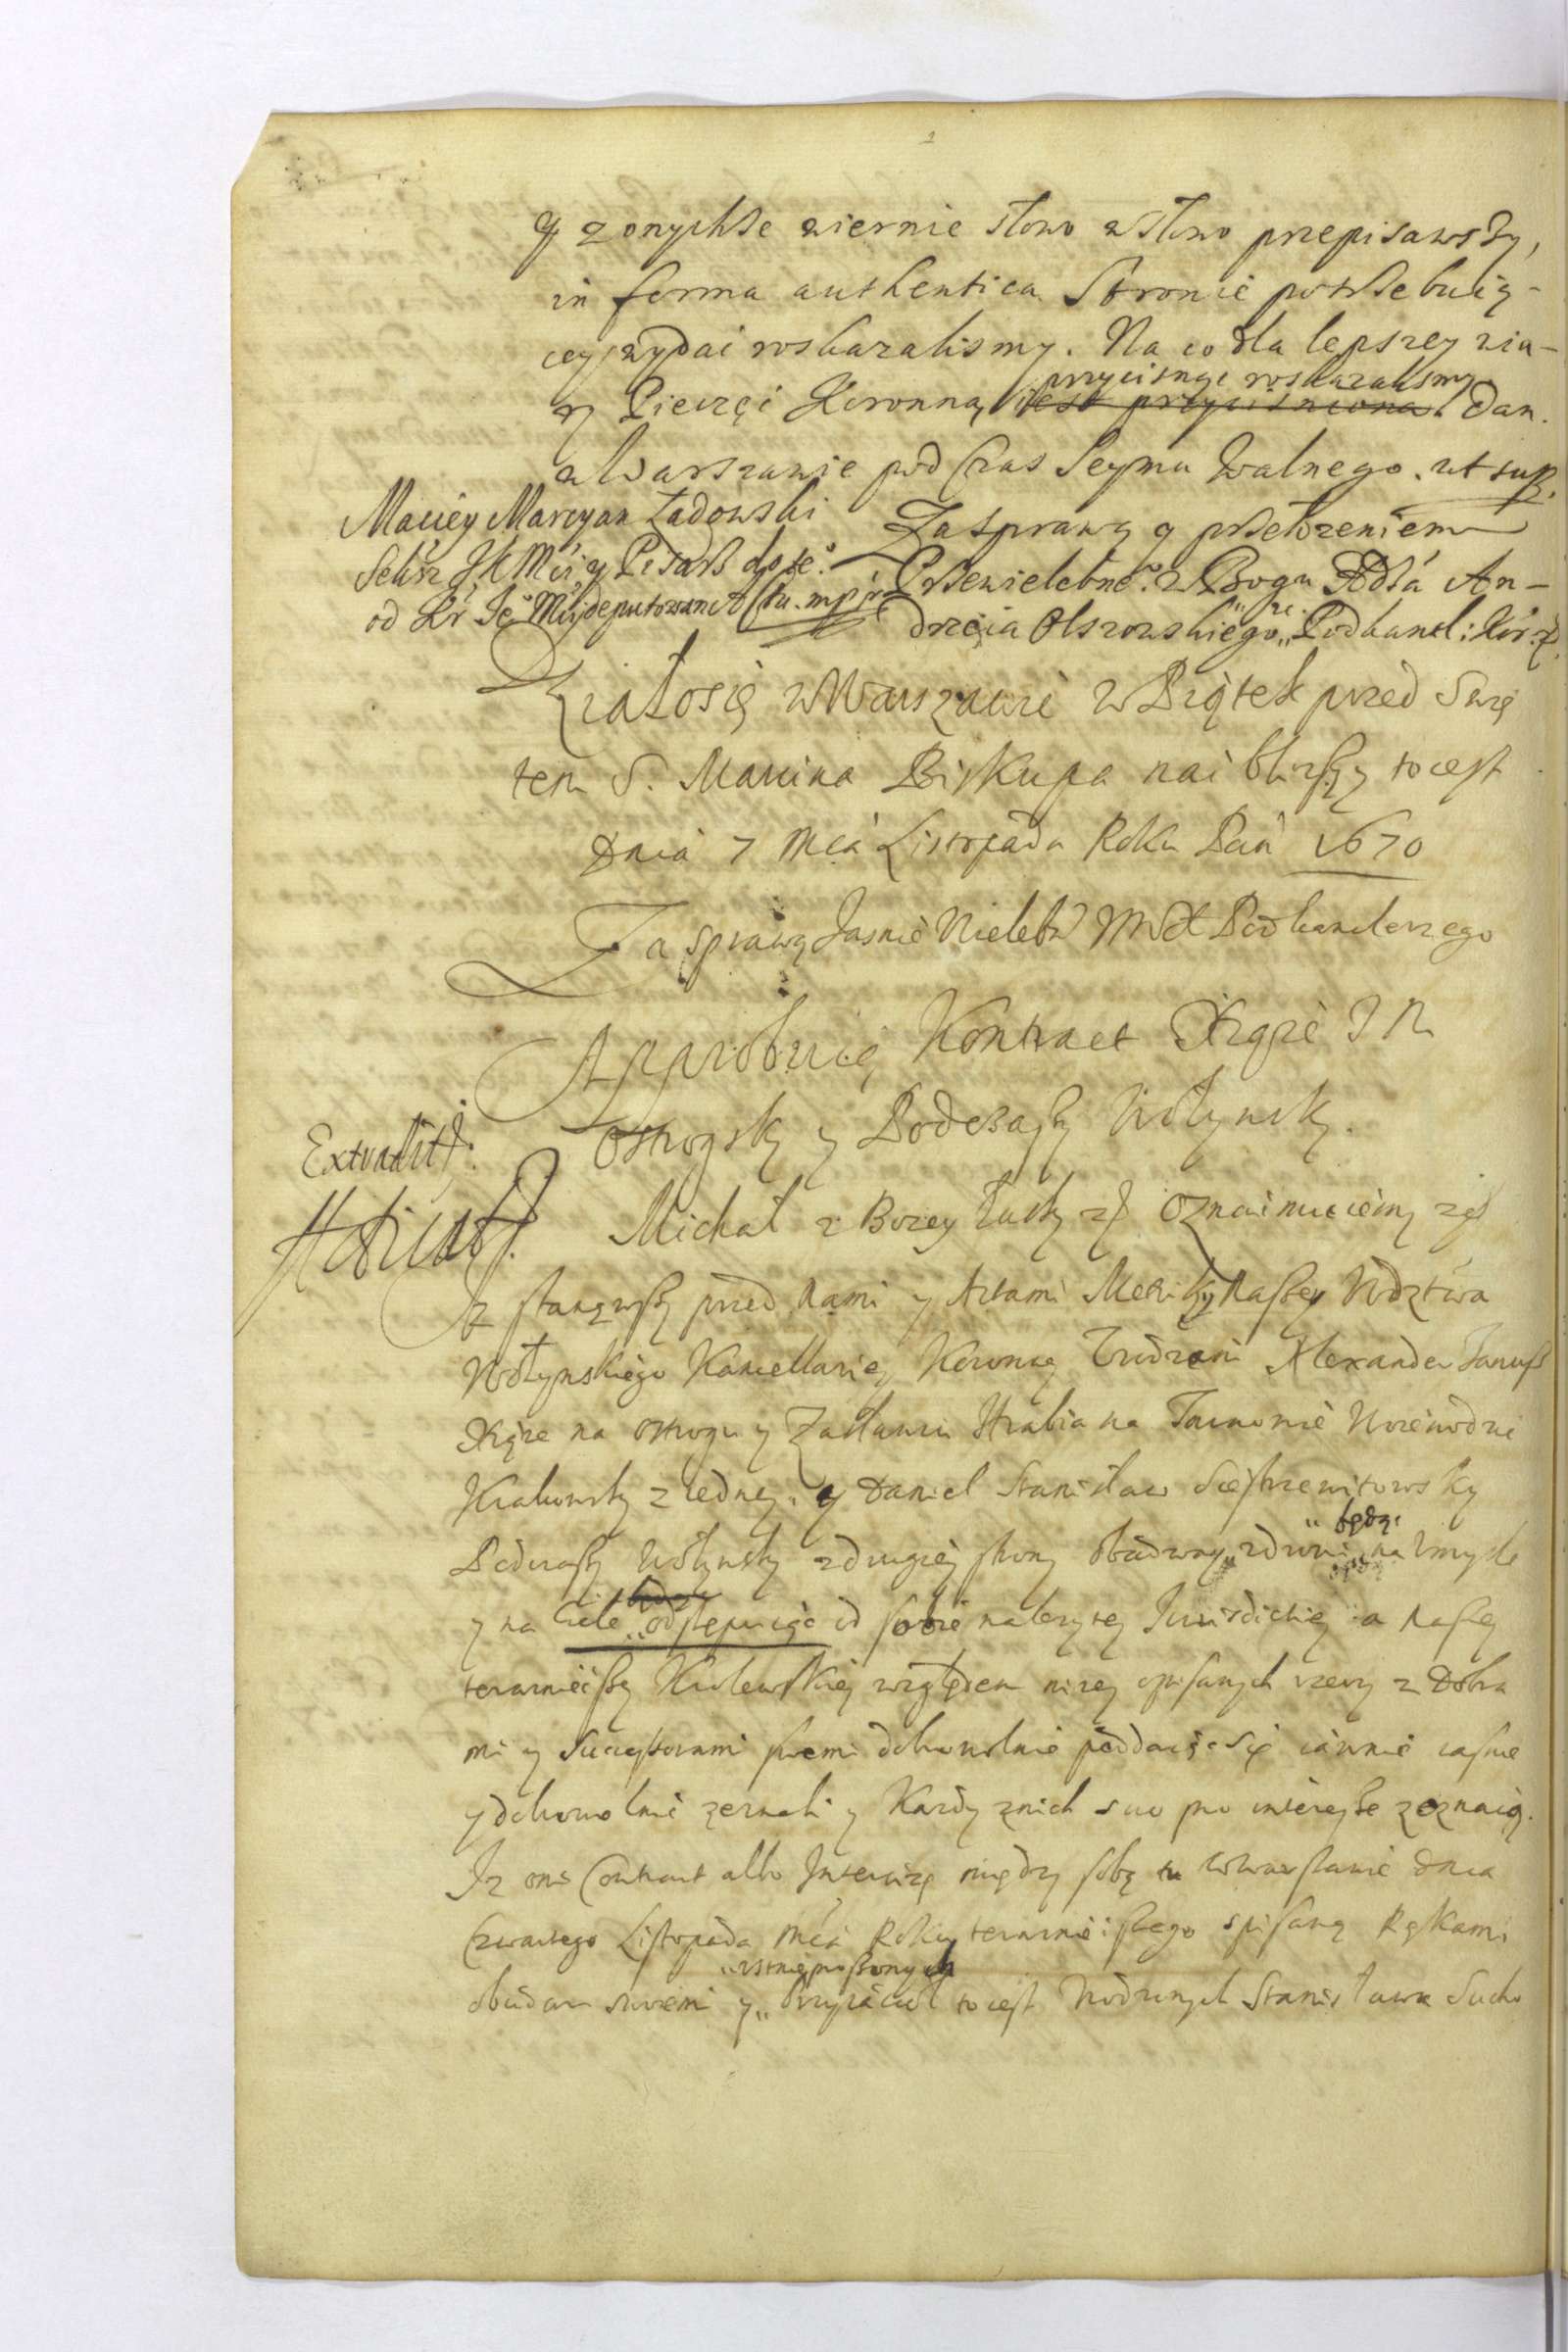 y z onychże wiernie słowo w słowo przepisawszy,
in forma authentica Stronie potrzebuią-
cey wydai roskazalismy. Na co dla lepszey wia-
ry Pieczęć Koronną iest przyciśniona przycisnąc roskazalismy Dan.
w Warszawie pod Czas Seymu Walnego. ut sup.
Maciey Marcyan Ładowski
Sekr: JK Mći y Pisarz do te°
od Kr Je° Mći deputowany mpp
Za sprawą y przełożeniem
Przewielebne° w Bogu Andrzeia Olszowskiego Podkancl: Kor:
Działosię w Warszawie w Piątek przed Swię
tem S. Marcina Biskupa naibliższy to iest
Dnia 7 Mca Listopada Roku Pań 1670
Za sprawą Jasnie Wieleb Podkanclerzego
Approbuię Kontract Xiąże
Ostrogsky y Podczaszy Wołynsky.
Extradit.
Michał z Bozey łasky Oznaimuiemy
Iz stanąwszy przed Nami y Aktami Metriky Naszey Wdztwa
Wołynskiego Kancellariey Koronney Urodzeni Alexander Janusz
Xiąże na Ostrogu y Zasławiu Hrabia na Tarnowie Woiewodzic
Krakowsky z iedney, y Daniel Stanisław
Podczaszy Wołynsky z drugiey strony obadway zdrowi będąc na Umysle
y na Ciele odstępuiąc od sobie należytey Jurisdictiey a Naszey
teraznieiszey Krolewskiey względem nizey opisanych rzeczy z Dobra
mi y Successorami swemi dobrowolnie poddaiąc się iawnie iasnie
y dobrowolnie zeznali y Kazdy z nich suo pro interesse zeznaią.
Iz oni Contract albo Intercizę między sobą tu w Warszawie dnia
Czwartego Listopada Mca Roku teraznieiszego spisaną Rękami
obudwu swemi y ustnie proszonych Przyiacioł to iest Urodzonych Stanisława Sucho